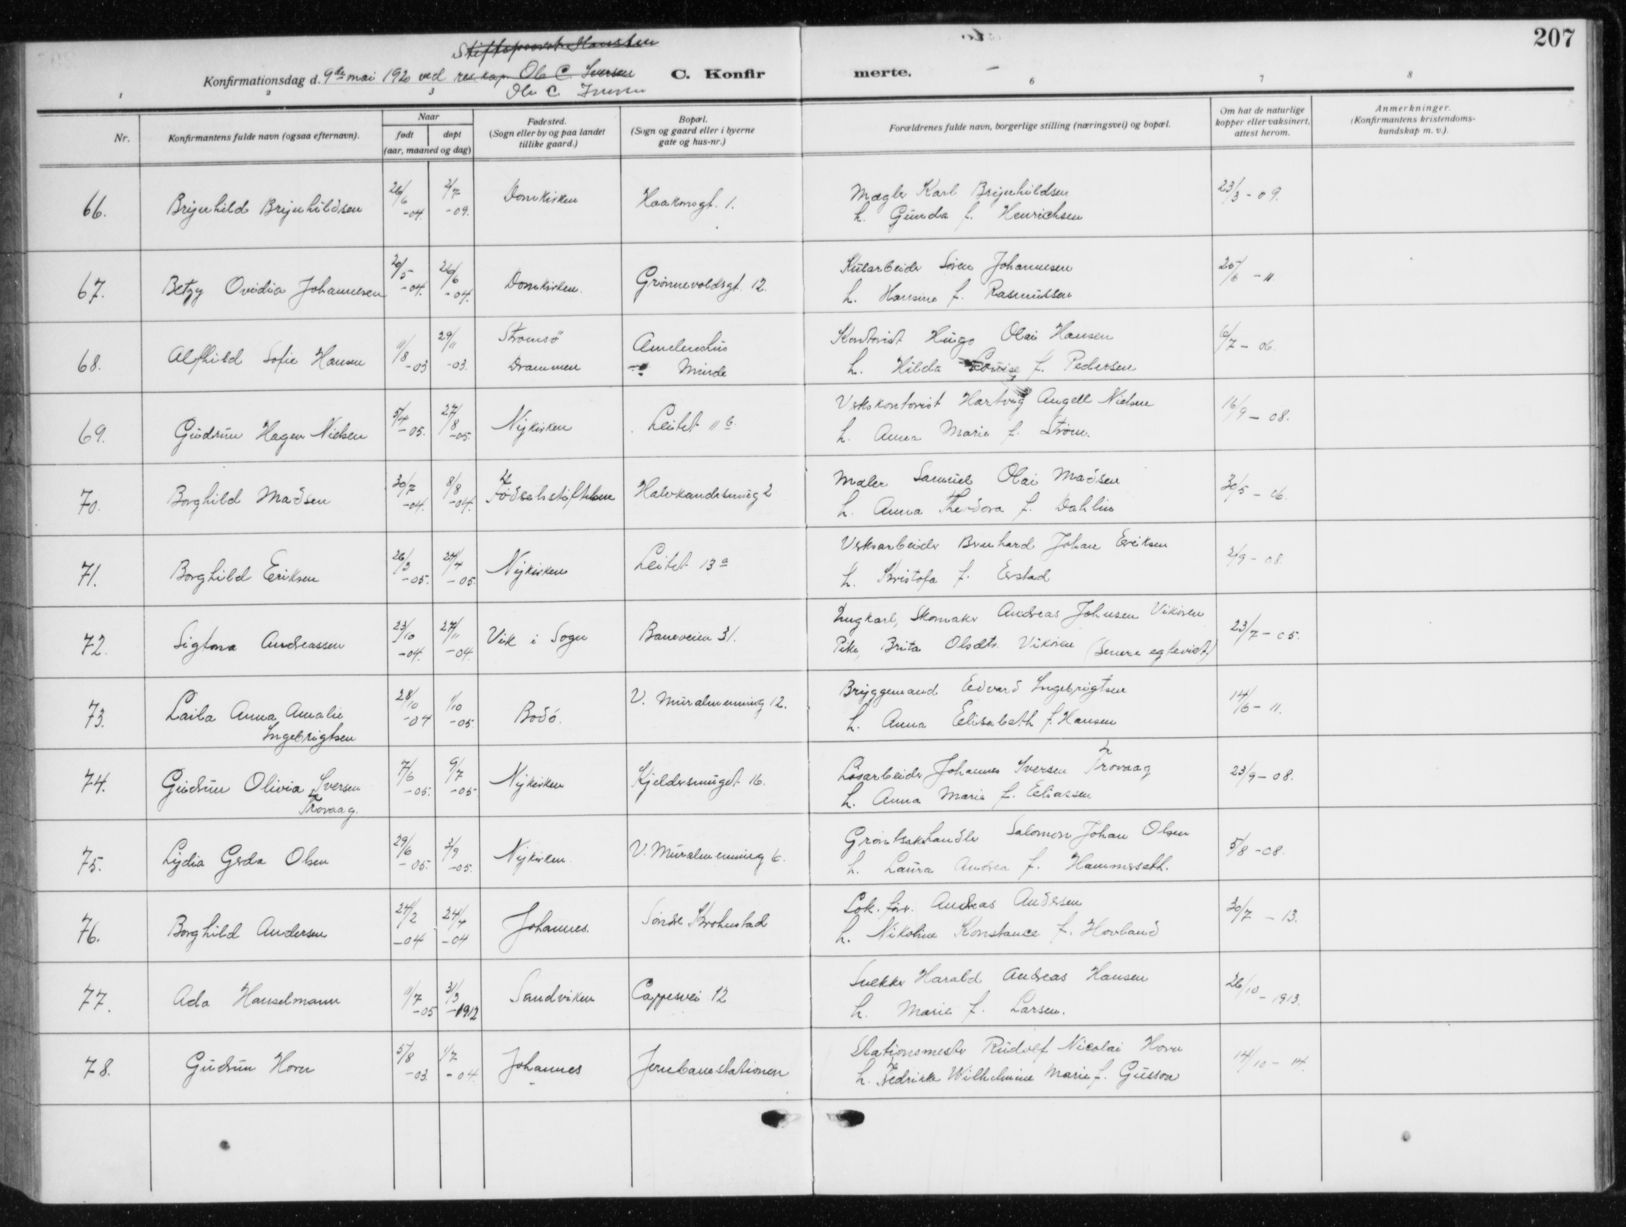 207
Stiftsprovst Hansteen
Konfirmationsdag d. 9de mai 1920 ved res. kap. Ole C. Iversen C. Konfirmerte.
Ole C. Iversen
1 2 3 6 7 8
Nr. Konfirmantens fulde navn (ogsaa efternavn). Naar født døpt (aar, maaned og dag) Fødested. (Sogn eller by og paa landet tillike gaard.) Bopæl. (Sogn og gaard eller i byerne gate og hus-nr.) Forældrenes fulde navn, borgerlige stilling (næringsvei) og bopæl. Om hat de naturlige kopper eller vaksinert, attest herom. Anmerkninger. (Konfirmantens kristendomskundskap m. v.).
66. Brynhild Brynhildsen 26/6 -04 2/7 -09. Domkirken Haakonsgt. 1. Mægler Karl Brynhildsen 23/3 - 09.
h. Gunda f. Henrichsen
67. Betzy Ovidia Johannesen 20/5 -04. 26/6 -04. Domkirken. Grønnevoldsgt. 12. Kularbeider Søren Johannesen 25/6 - 11
h. Hansine f. Rasmussen
68. Alfhild Sofie Hansen 11/8 -03 29/11 -03. Strømsø Amelienshus Kontorist Hugo Olai Hansen 6/7 - 06.
Drammen Minde h. Hilda Lovise f. Pedersen
69. Gudrun Hagen Nielsen 5/4 -05. 27/8 -05 Nykirken Leitet 11 b. Verkskontorist Hartvig Angell Nielsen 16/9 - 08.
h. Anna Marie f. Strøm.
70. Borghild Madsen 30/7 -04. 8/8 -04. Fødselsstiftelsen Halvkandesmug 2 Maler Samuel Olai Madsen 30/5 - 16.
h. Anna Theodora f. Dahlin
71. Borghild Eriksen 26/3 -05. 24/4 -05 Nykirken Leitet 13 a Verksarbeider Bernhard Johan Eriksen 2/9 - 08.
h. Kristofa f. Evstad
72. Sigtona Andreassen 23/10 -04. 27/11 -04. Vik i Sogn Baneveien 31. Ungkarl, Skomaker Andreas Johnsen Vikøren 23/7 - 05.
Pike, Brita Olsdtr. Vikøren (senere egteviet)
73. Laila Anna Amalie 28/10 -04 1/10 -05 Bodø. V. Muralmenning 12. Bryggemand Edvard Ingebrigtsen 14/6 - 11.
Ingebrigtsen h. Anna Elisabeth f. Hansen
74. Gudrun Olivia Iversen 7/6 -05. 9/7 -05 Nykirken Kjeldersmuget 16. Løsarbeider Johannes Iversen Trovaag 23/9 - 08.
Trovaag. h. Anna Marie f. Eliassen
75. Lydia Gerda Olsen 29/6 -05. 3/9 -05. Nykirken. V. Muralmenning 6. Grøntsakhandler Salomon Johan Olsen 5/8 - 08.
h. Laura Andrea f. Hammerseth.
76. Borghild Andersen 24/2 -04 24/4 -04 Johannes. Søndre Krohnstad Lok. fører Andreas Andersen 30/7 - 13.
h. Nikoline Konstance f. Hovland
77. Ada Hanselmann 11/7 -05 31/3 -1912 Sandviken Cappesvei 12 Snekker Harald Andreas Hansen 26/10 - 1913.
h. Marie f. Larsen.
78. Gudrun Horn 5/8 -03 1/7 -04. Johannes Jernbanestationen Stationsmester Rudolf Nicolai Horn 14/10 - 14.
h. Fredrikke Wilhelmine Marie f. Gusson